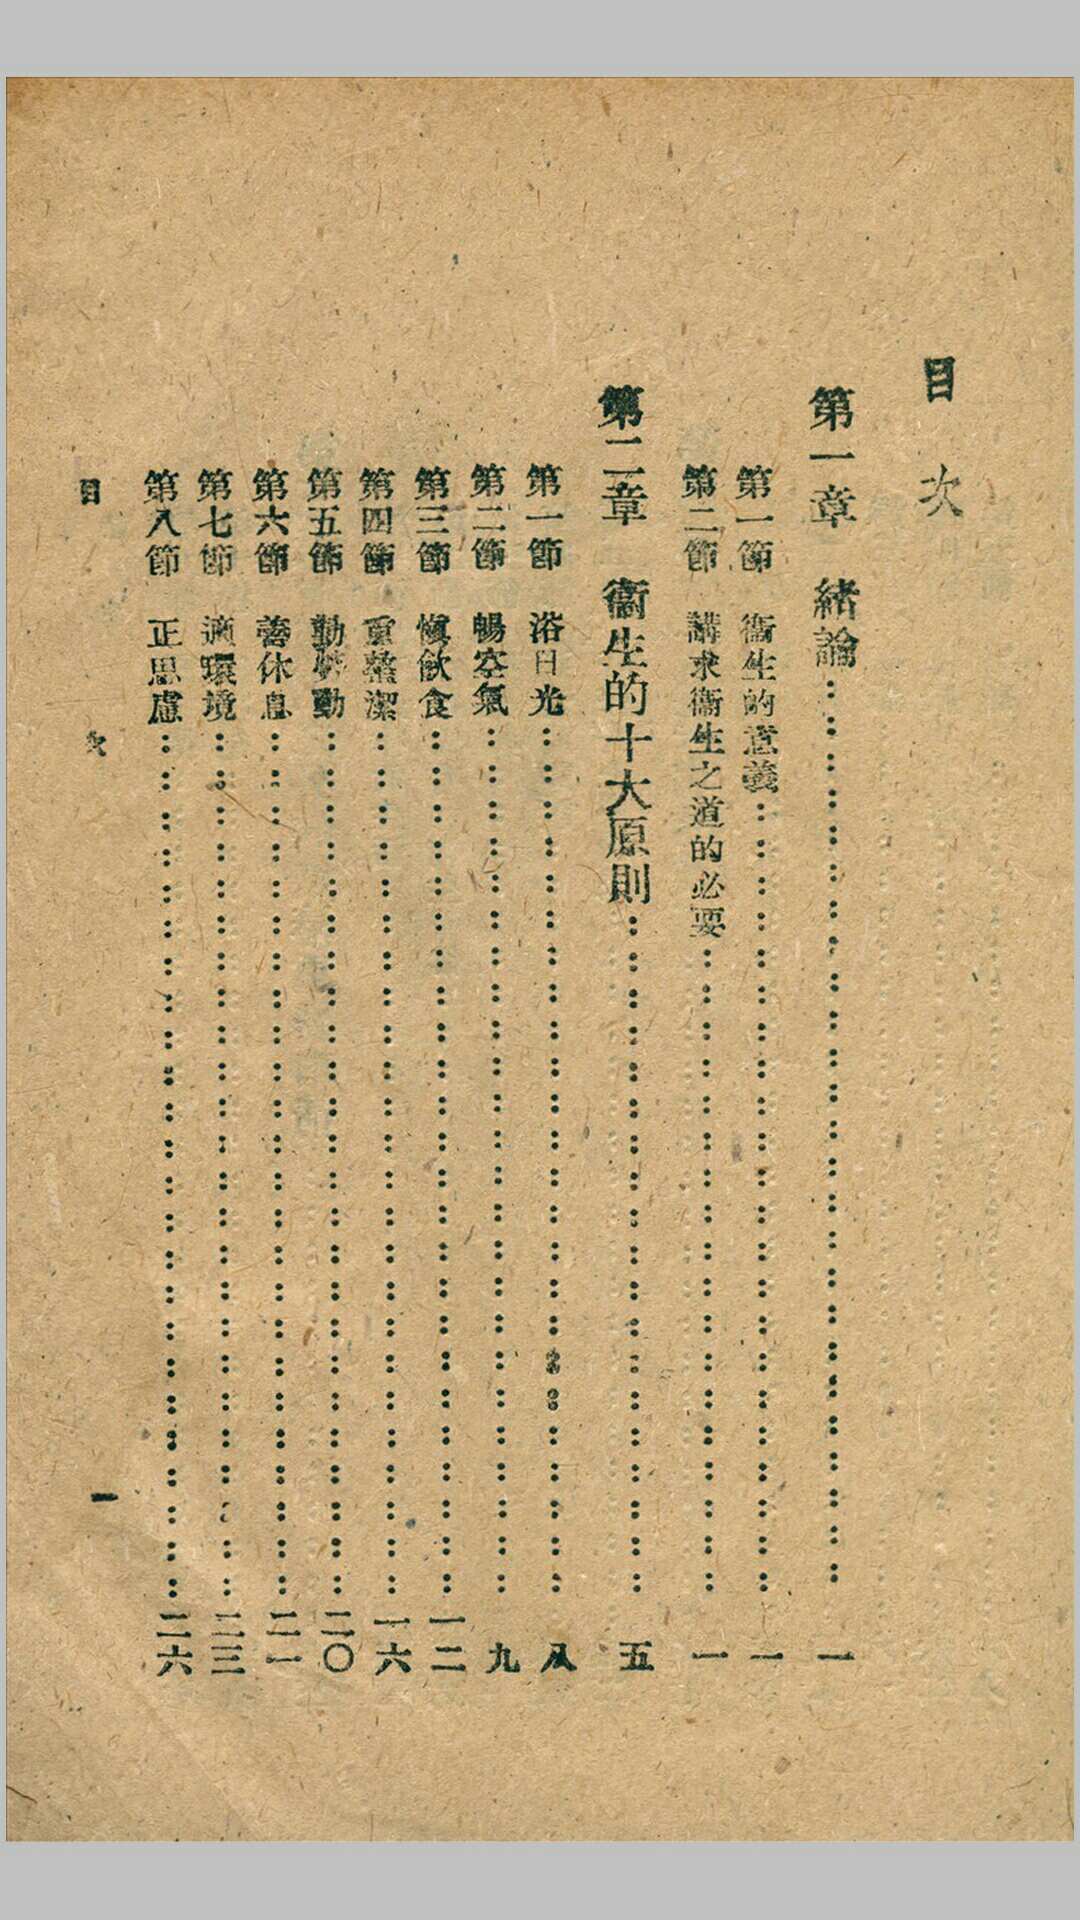 目次
第一章 緒論……………………一
第一節 衞生的意義……………………一
第二節 講求衞生之道的必要……………………一
第二章 衞生的十大原則……………………五
第一節 浴日光……………………八
第二節 暢空氣……………………九
第三節 愼飲食……………………一二
第四節 重整潔……………………一六
第五節 勤勞動……………………二〇
第六節 善休息……………………二一
第七節 適環境……………………二三
第八節 正思慮……………………二六
目次 一